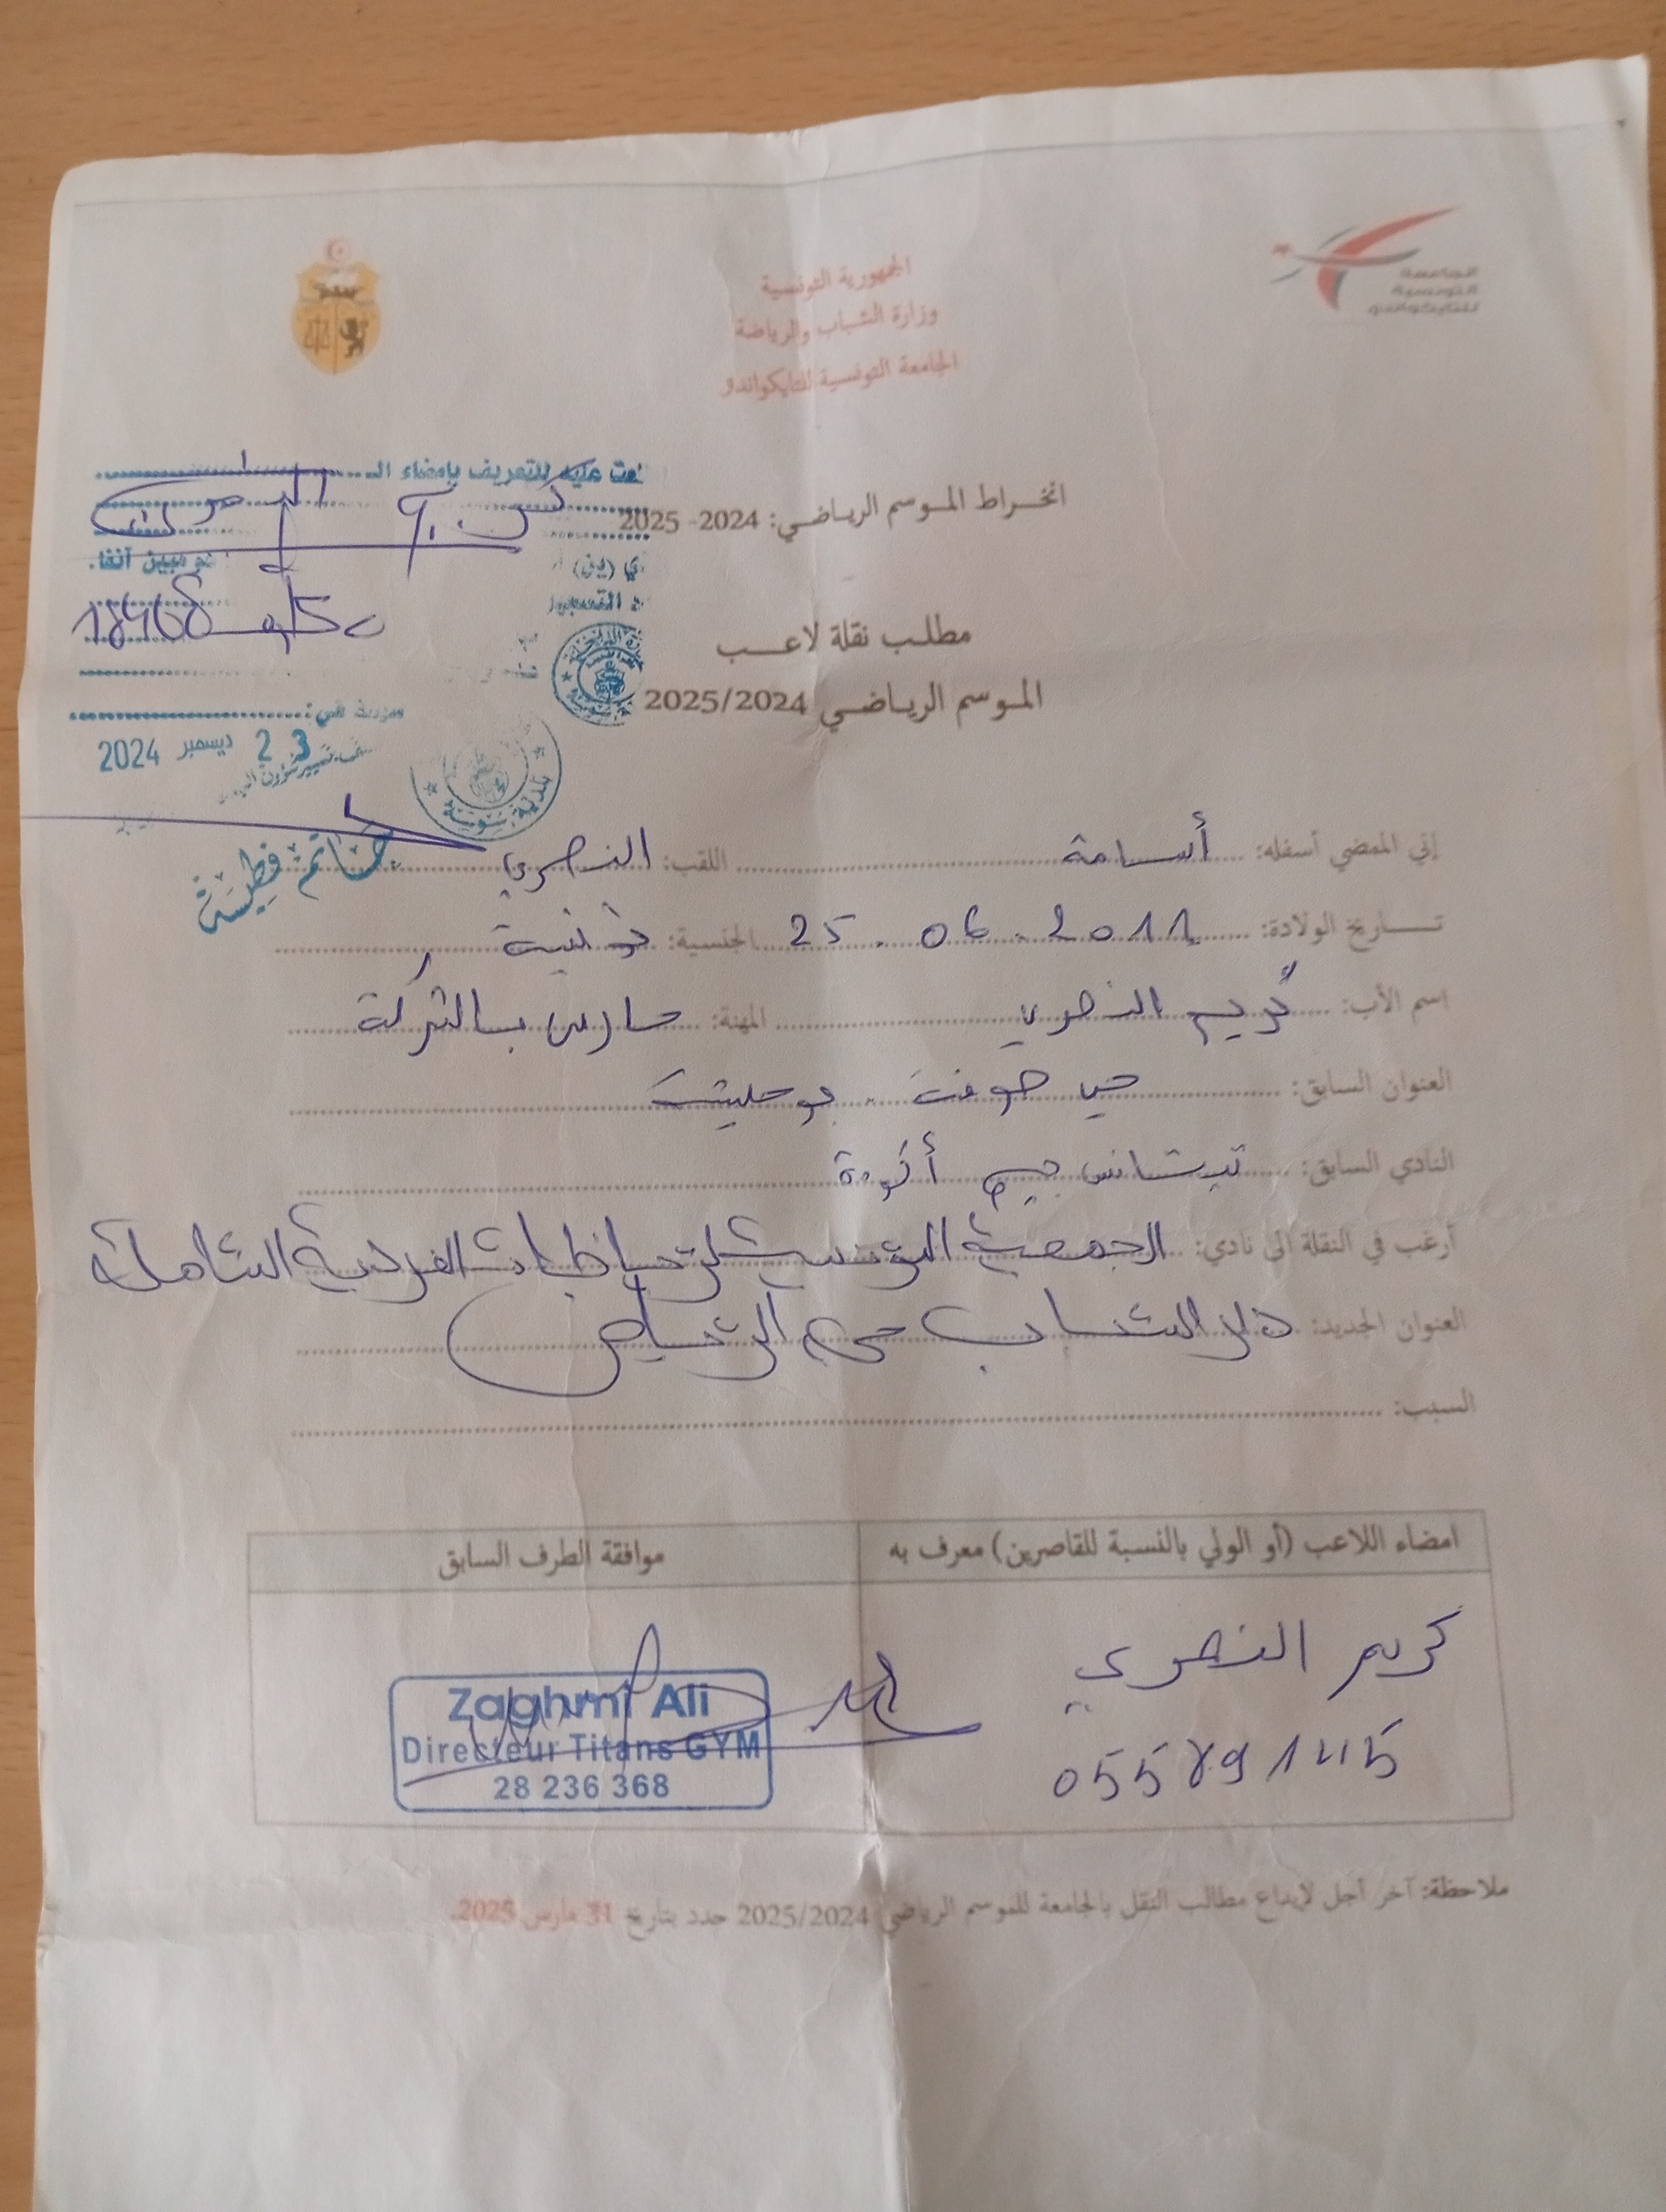 الجمهورية التونسية
وزارة الشباب والرياضة
الجامعة التونسية للتايكواندو
الجامعة
التونسية
للتايكواندو
عليه للتعريف بإمضاء
مبين آنفا.
2 3 ديسمبر 2024
بلدية سوسة
انخراط الموسم الرياضي: 2024- 2025
مطلب نقلة لاعب
الموسم الرياضي 2025/2024
إني الممضي أسفله: أسامة اللقب: النصري
تاريخ الولادة: 25.06.2011 الجنسية: تونسية
اسم الأب: كريم النصري المهنة: حارس بالشركة
العنوان السابق: حي
النادي السابق: تيتانس جيم أكودة
أرغب في النقلة الى نادي: الجمعية التونسية للرياضات الفردية الشاملة
العنوان الجديد: دار الشباب حي الرياض
السبب:
امضاء اللاعب (أو الولي بالنسبة للقاصرين) معرف به
موافقة الطرف السابق
كريم النصري
05589145
Zaghmi Ali
Directeur Titans GYM
28 236 368
ملاحظة: آخر أجل لإيداع مطالب النقل بالجامعة للموسم الرياضي 2025/2024 حدد بتاريخ 31 مارس 2025.